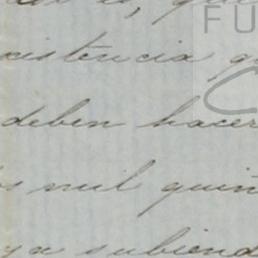 FU
xistencia
deben hacer
s mil quiñ
ya subiend